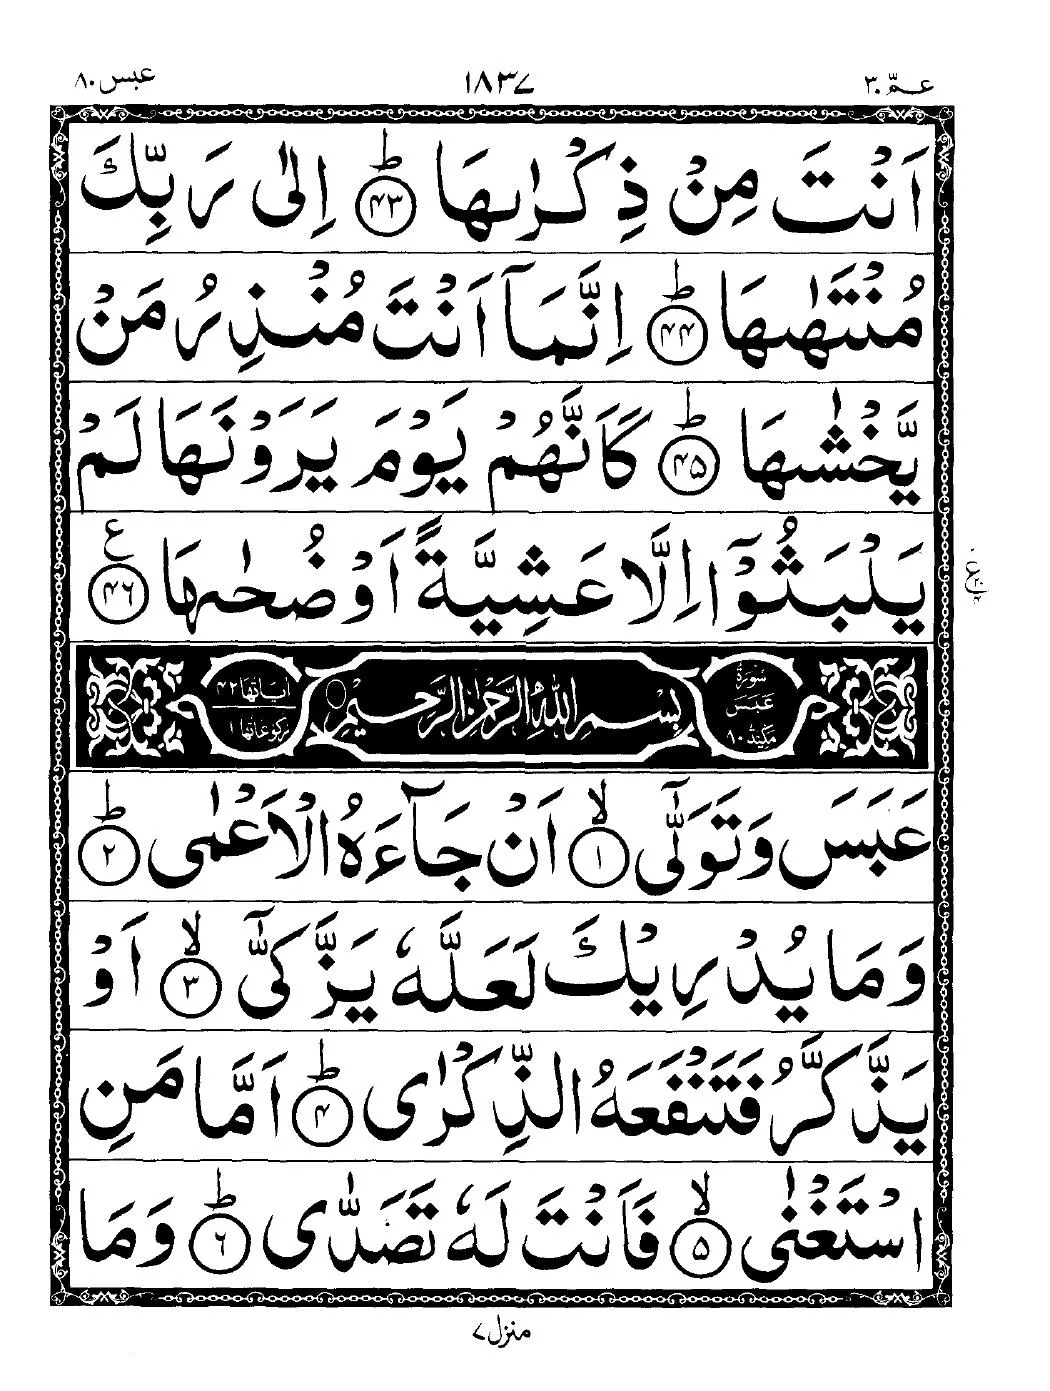 عـمّ ٣٠ ١٨٣٧ عبس ٨٠
اَنۡتَ مِنۡ ذِكۡرٰٮهَا ؕ‏ ﴿۴۳﴾ اِلٰى رَبِّكَ
مُنۡتَهٰٮهَا ؕ‏ ﴿۴۴﴾ اِنَّمَاۤ اَنۡتَ مُنۡذِرُ مَنۡ
يَّخۡشٰٮهَا ؕ‏ ﴿۴۵﴾ كَاَنَّهُمۡ يَوۡمَ يَرَوۡنَهَا لَمۡ
يَلۡبَثُوۡۤا اِلَّا عَشِيَّةً اَوۡ ضُحٰٮهَا ﴿۴۶﴾ ع
سُوۡرَةُ عَبَسَ مَكِّيَّةٌ ٨٠ بِسۡمِ اللهِ الرَّحۡمٰنِ الرَّحِيۡمِ اٰيَاتُهَا ۴۲ رُكُوۡعَاتُهَا ۱
عَبَسَ وَتَوَلّٰٓىۙ‏ ﴿۱﴾ اَنۡ جَآءَهُ الۡاَعۡمٰىؕ‏ ﴿۲﴾
وَمَا يُدۡرِيۡكَ لَعَلَّهٗ يَزَّكّٰٓىۙ‏ ﴿۳﴾ اَوۡ
يَذَّكَّرُ فَتَنۡفَعَهُ الذِّكۡرٰىؕ‏ ﴿۴﴾ اَمَّا مَنِ
اسۡتَغۡنٰىۙ‏ ﴿۵﴾ فَاَنۡتَ لَهٗ تَصَدّٰىؕ‏ ﴿۶﴾ وَمَا
منزل ٧